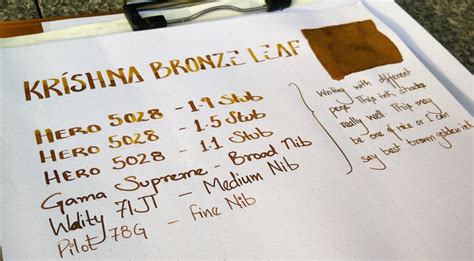 KRISHNA BRONZE LEAF
HERO 5028 - 1.9 Stub
HERO 5028 - 1.5 Stub
HERO 5028 - 1.1 Stub
Gama Supreme - Broad Nib
Wality 71JT - Medium Nib
Pilot 78G - Fine Nib
Writing with different
pens. This ink shades
really well. This may
be one of nice or I can
say best brown golden ink